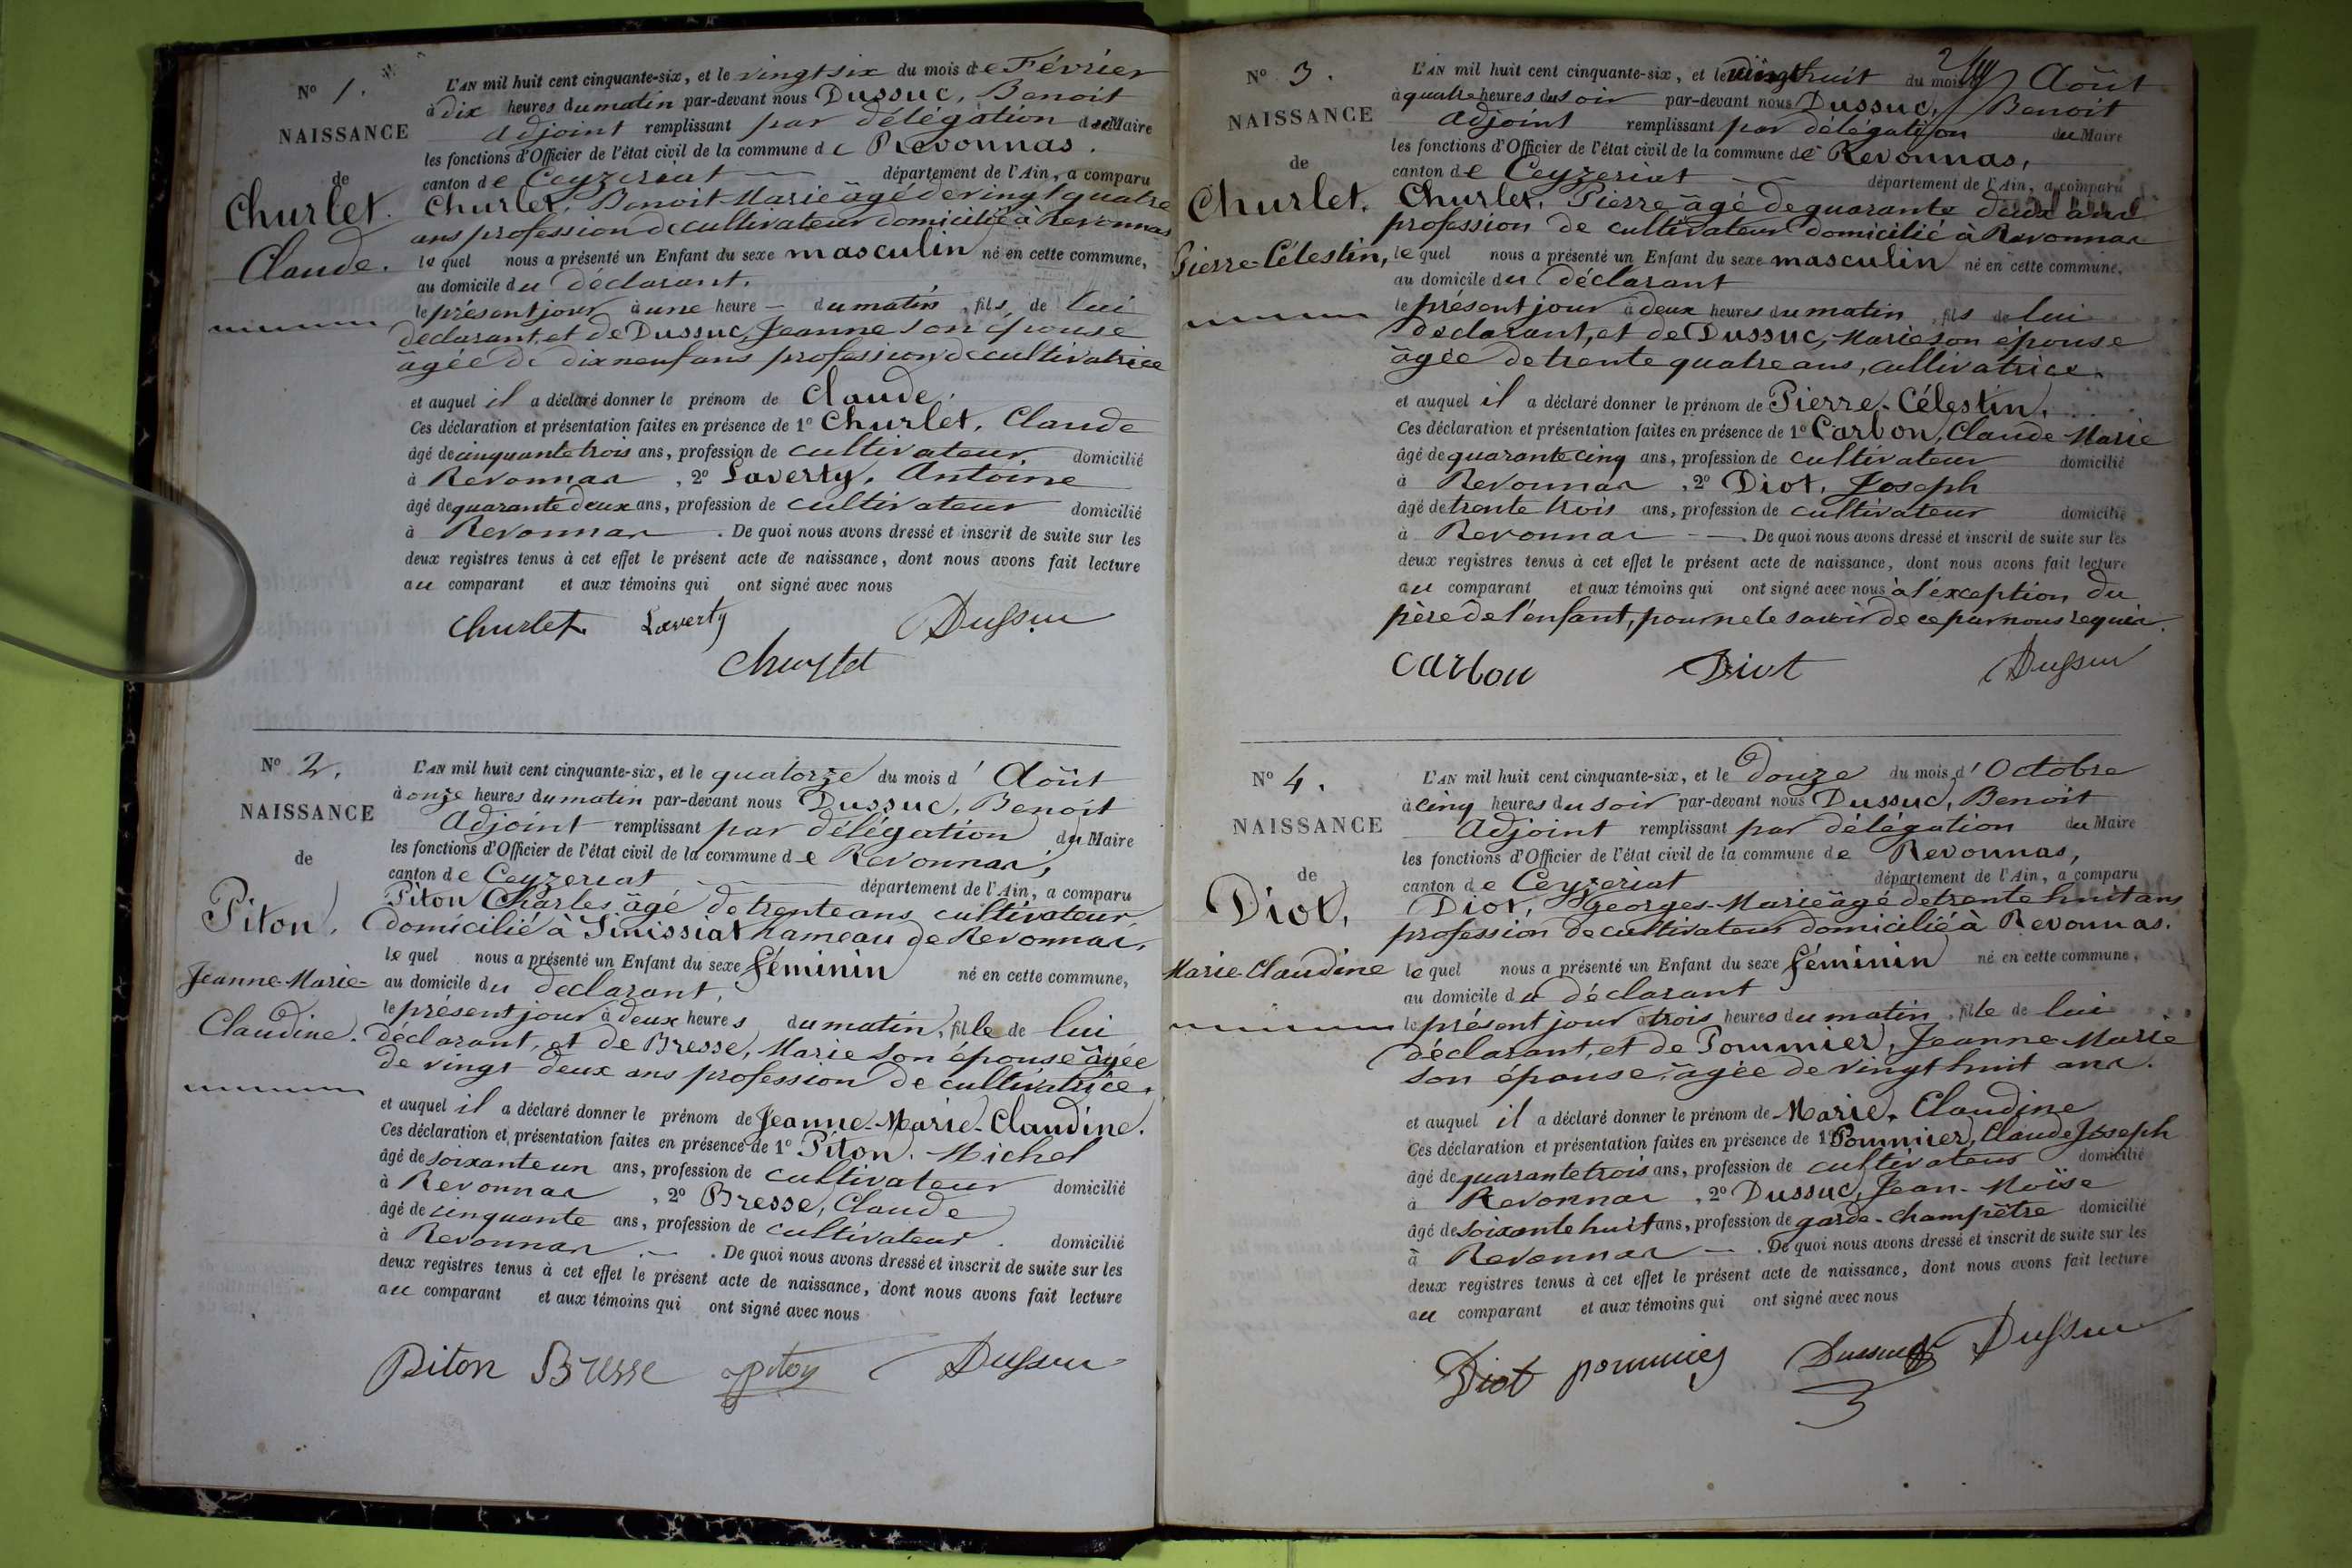 N° 1.
NAISSANCE
de
Churlet.
Claude.
L'AN mil huit cent cinquante-six, et le vingt six du mois de Février
à dix heures du matin par-devant nous Dussuc, Benoit
Adjoint remplissant par délégation du Maire
les fonctions d'Officier de l'état civil de la commune de Revonnas.
canton de Ceyzeriat département de l'Ain, a comparu
Churlet, Benoit-Marie âgé de vingt quatre
ans profession de cultivateur domicilié à Revonnas
lequel nous a présenté un Enfant du sexe masculin né en cette commune,
au domicile du déclarant.
le présent jour à une heure du matin, fils de lui
déclarant, et de Dussuc, Jeanne son épouse
âgée de dix neuf ans profession de cultivatrice
et auquel il a déclaré donner le prénom de Claude.
Ces déclaration et présentation faites en présence de 1° Churlet, Claude
âgé de cinquante trois ans, profession de cultivateur, domicilié
à Revonnas, 2° Laverty, Antoine
âgé de quarante deux ans, profession de cultivateur domicilié
à Revonnas. De quoi nous avons dressé et inscrit de suite sur les
deux registres tenus à cet effet le présent acte de naissance, dont nous avons fait lecture
au comparant et aux témoins qui ont signé avec nous
Churlet. Laverty Dussuc
Churlet
N° 2.
NAISSANCE
de
Piton,
Jeanne-Marie-
Claudine.
L'AN mil huit cent cinquante-six, et le quatorze du mois d'Août
à onze heures du matin par-devant nous Dussuc, Benoit
Adjoint remplissant par délégation du Maire
les fonctions d'Officier de l'état civil de la commune de Revonnas,
canton de Ceyzeriat département de l'Ain, a comparu
Piton Charles, âgé de trente ans cultivateur
domicilié à Sinissiat hameau de Revonnas,
lequel nous a présenté un Enfant du sexe féminin né en cette commune,
au domicile du déclarant,
le présent jour à deux heures du matin, fille de lui
déclarant, et de Bresse, Marie son épouse âgée
de vingt deux ans profession de cultivatrice.
et auquel il a déclaré donner le prénom de Jeanne-Marie-Claudine.
Ces déclaration et présentation faites en présence de 1° Piton, Michel
âgé de soixante un ans, profession de cultivateur domicilié
à Revonnas, 2° Bresse, Claude
âgé de cinquante ans, profession de cultivateur domicilié
à Revonnas. De quoi nous avons dressé et inscrit de suite sur les
deux registres tenus à cet effet le présent acte de naissance, dont nous avons fait lecture
au comparant et aux témoins qui ont signé avec nous
Piton Bresse piton Dussuc
N° 3.
NAISSANCE
de
Churlet.
Pierre-Célestin,
L'AN mil huit cent cinquante-six, et le vingt huit du mois Août
à quatre heures du soir par-devant nous Dussuc, Benoit
Adjoint remplissant par délégation du Maire
les fonctions d'Officier de l'état civil de la commune de Revonnas,
canton de Ceyzeriat département de l'Ain, a comparu
Churlet, Pierre âgé de quarante deux ans
profession de cultivateur domicilié à Revonnas
lequel nous a présenté un Enfant du sexe masculin né en cette commune,
au domicile du déclarant
le présent jour à deux heures du matin, fils de lui
déclarant, et de Dussuc, Marie son épouse
âgée de trente quatre ans, cultivatrice.
et auquel il a déclaré donner le prénom de Pierre-Célestin,
Ces déclaration et présentation faites en présence de 1° Carbon, Claude-Marie
âgé de quarante cinq ans, profession de cultivateur domicilié
à Revonnas, 2° Diot, Joseph
âgé de trente trois ans, profession de cultivateur domicilié
à Revonnas. De quoi nous avons dressé et inscrit de suite sur les
deux registres tenus à cet effet le présent acte de naissance, dont nous avons fait lecture
au comparant et aux témoins qui ont signé avec nous à l'exception du
père de l'enfant, pour ne le savoir de ce par nous requis.
Carbon Diot Dussuc
N° 4.
NAISSANCE
de
Diot,
Marie-Claudine
L'AN mil huit cent cinquante-six, et le douze du mois d'Octobre
à cinq heures du soir par-devant nous Dussuc, Benoit
Adjoint remplissant par délégation du Maire
les fonctions d'Officier de l'état civil de la commune de Revonnas,
canton de Ceyzeriat département de l'Ain, a comparu
Diot, Georges-Marie âgé de trente huit ans
profession de cultivateur domicilié à Revonnas.
lequel nous a présenté un Enfant du sexe féminin né en cette commune,
au domicile du déclarant
le présent jour à trois heures du matin, fille de lui
déclarant, et de Pommier, Jeanne-Marie
son épouse, âgée de vingt huit ans.
et auquel il a déclaré donner le prénom de Marie-Claudine
Ces déclaration et présentation faites en présence de 1° Pommier, Claude Joseph
âgé de quarante trois ans, profession de cultivateur domicilié
à Revonnas, 2° Dussuc, Jean-Moïse
âgé de soixante huit ans, profession de garde-champêtre domicilié
à Revonnas. De quoi nous avons dressé et inscrit de suite sur les
deux registres tenus à cet effet le présent acte de naissance, dont nous avons fait lecture
au comparant et aux témoins qui ont signé avec nous
Diot pommier Dussuc Dussuc